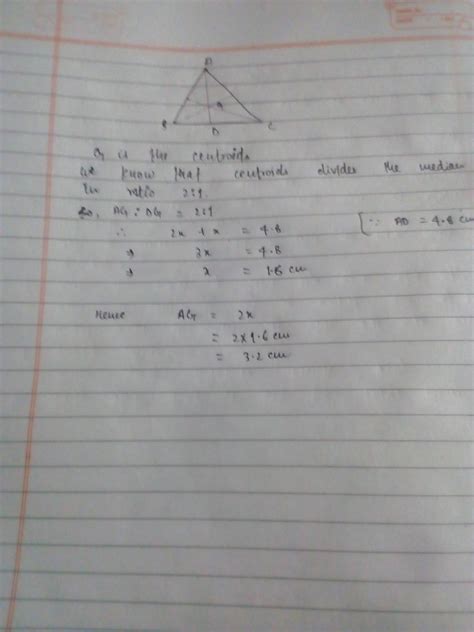 B D C
G is the centroids
We know that centroids divides the median
in ratio 2:1.
So, AG : DG = 2:1
∴ 2x + x = 4.8 [∵ AD = 4.8 cm
⇒ 3x = 4.8
⇒ x = 1.6 cm
Hence AG = 2x
= 2×1.6 cm
= 3.2 cm